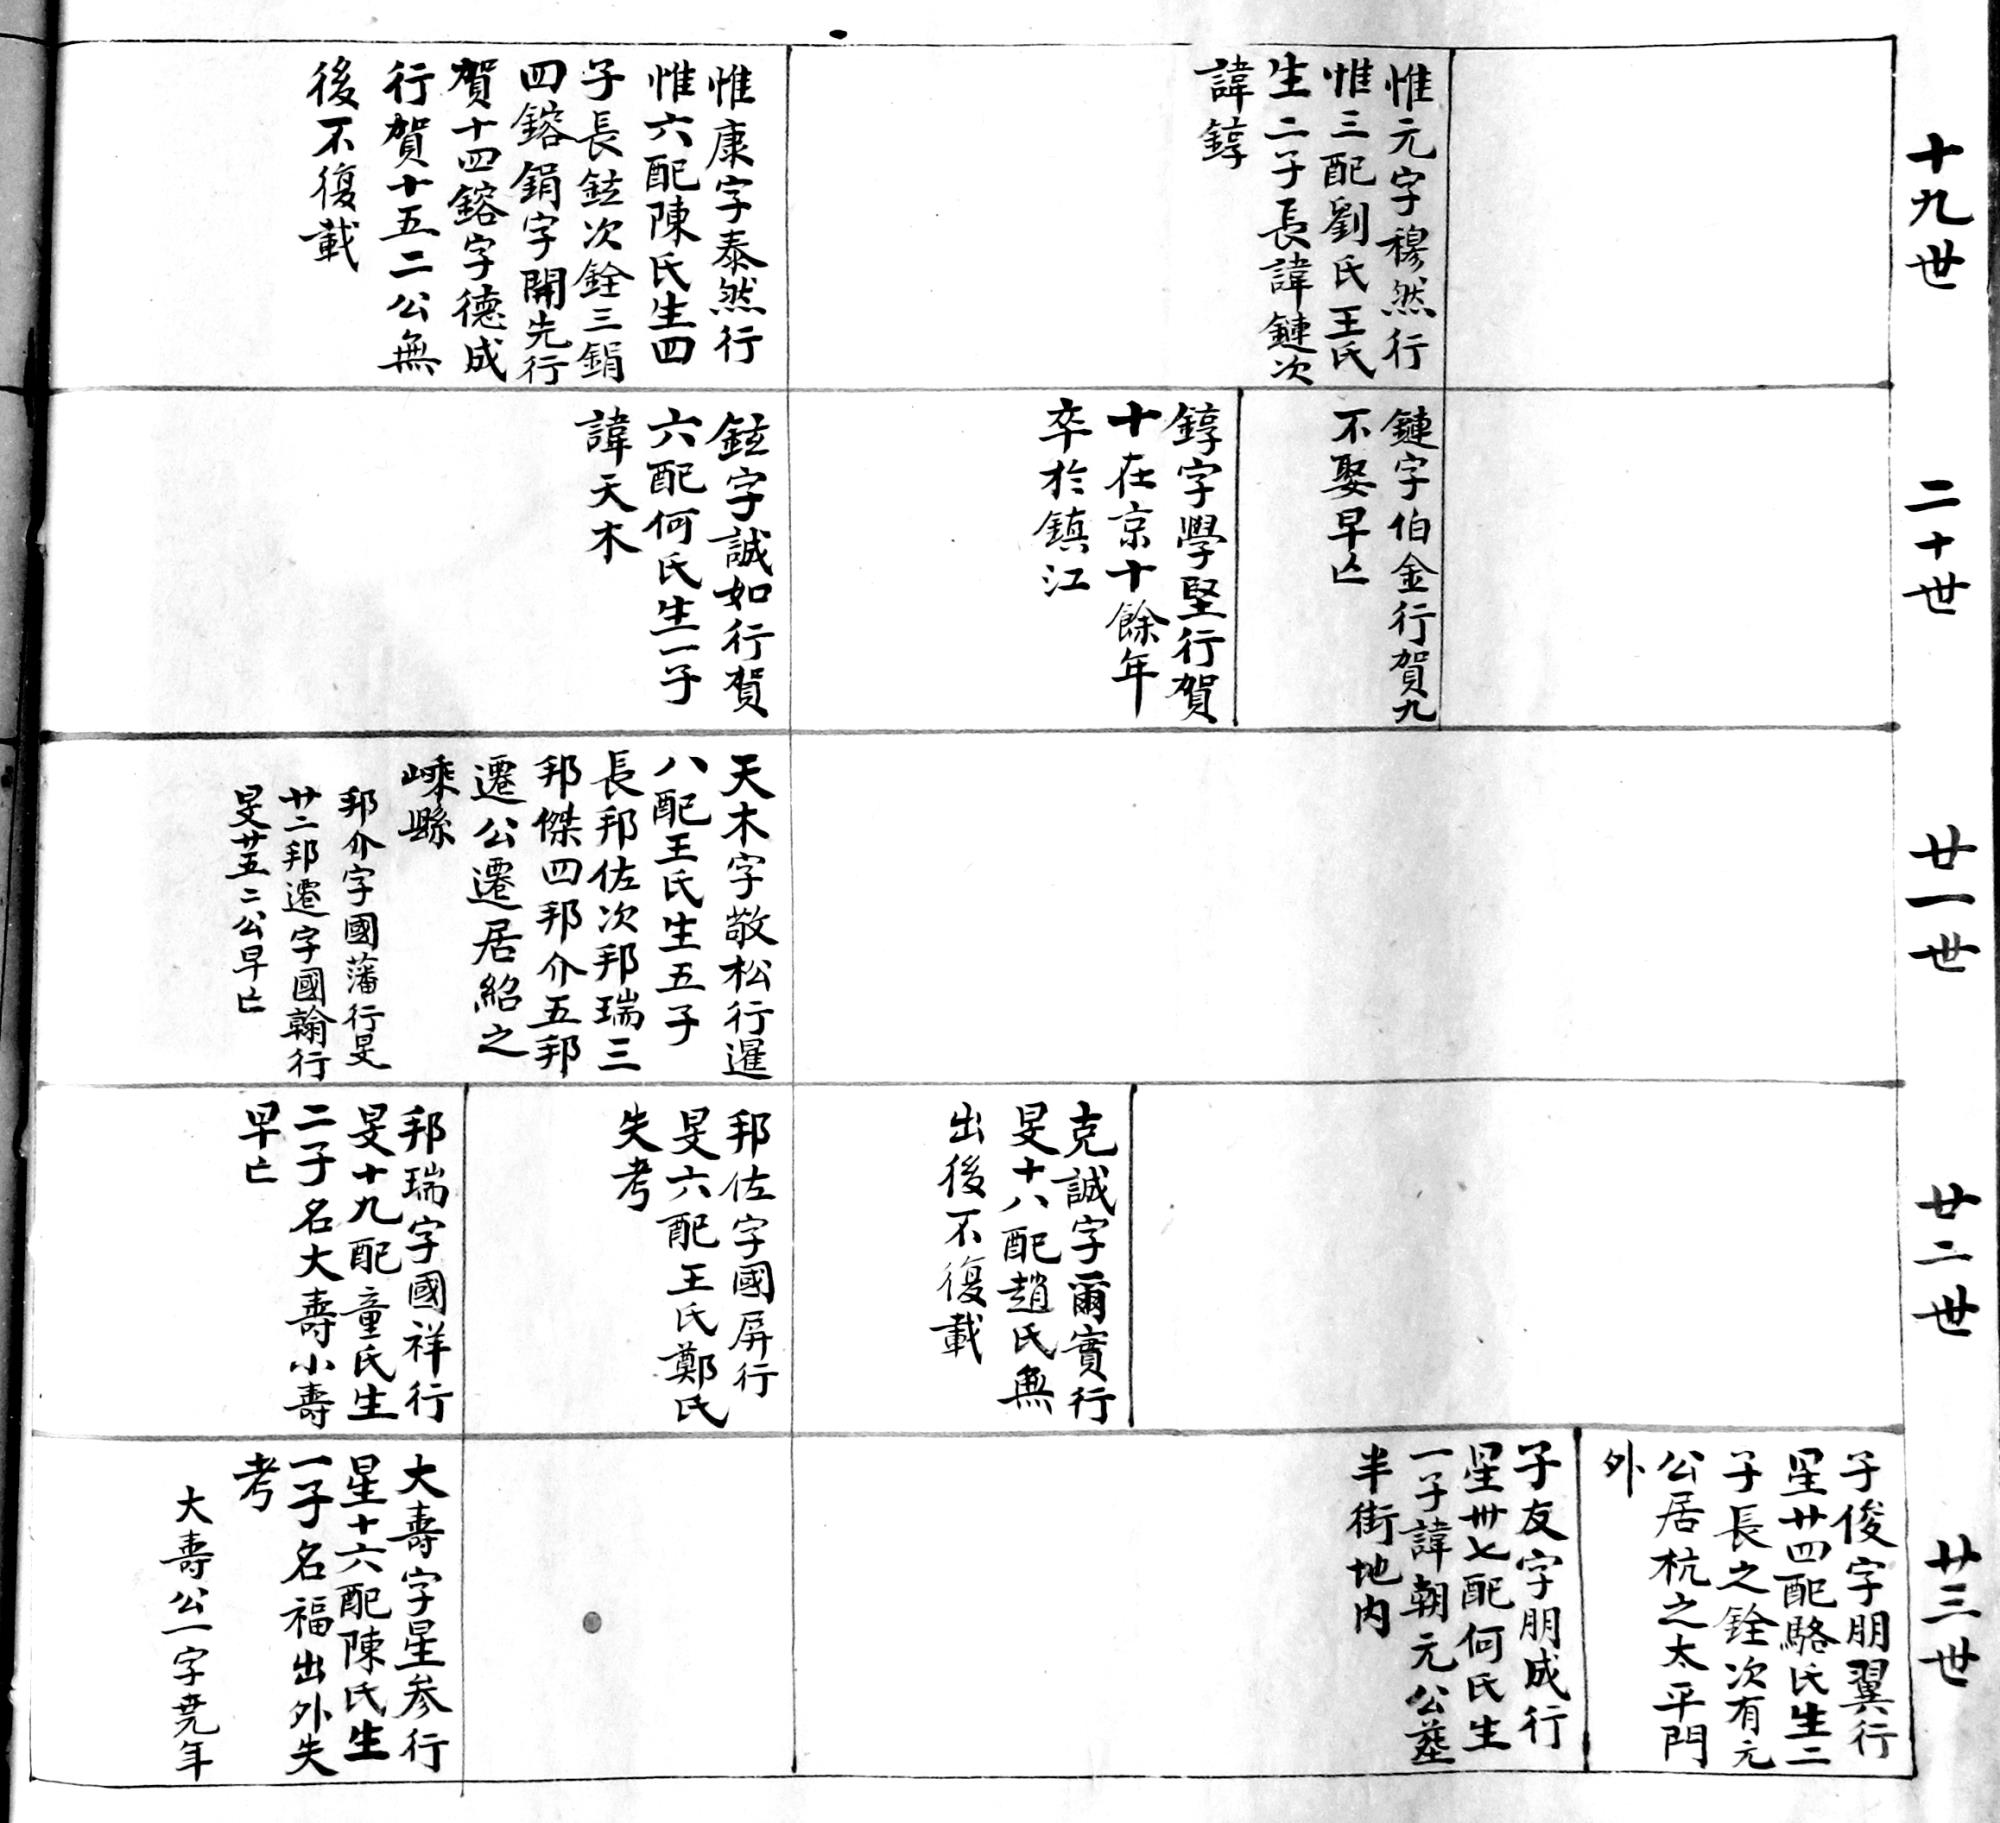 十九世
惟元字穆然行
惟三配劉氏王氏
生二子長諱鏈次
諱錞
惟康字泰然行
惟六配陳氏生四
子長鉉次銓三鋗
四鎔鋗字開先行
賀十四鎔字德成
行賀十五二公無
後不復載
二十世
鏈字伯金行賀九
不娶早亾
錞字學堅行賀
十在京十餘年
卒於鎮江
鉉字誠如行賀
六配何氏生一子
諱天木
廿一世
天木字敬松行暹
八配王氏生五子
長邦佐次邦瑞三
邦傑四邦介五邦
遷公遷居紹之
嵊縣
邦介字國藩行旻
廿二邦遷字國翰行
旻廿五二公早亡
廿二世
克誠字爾實行
旻十八配趙氏無
出後不復載
邦佐字國屏行
旻六配王氏鄭氏
失考
邦瑞字國祥行
旻十九配童氏生
二子名大壽小壽
早亡
廿三世
子俊字朋翼行
星廿四配駱氏生二
子長之銓次有元
公居杭之太平門
外
子友字朋成行
星卅七配何氏生
一子諱朝元公塟
半街地内
大壽字星参行
星十六配陳氏生
一子名福出外失
考
大壽公一字堯年